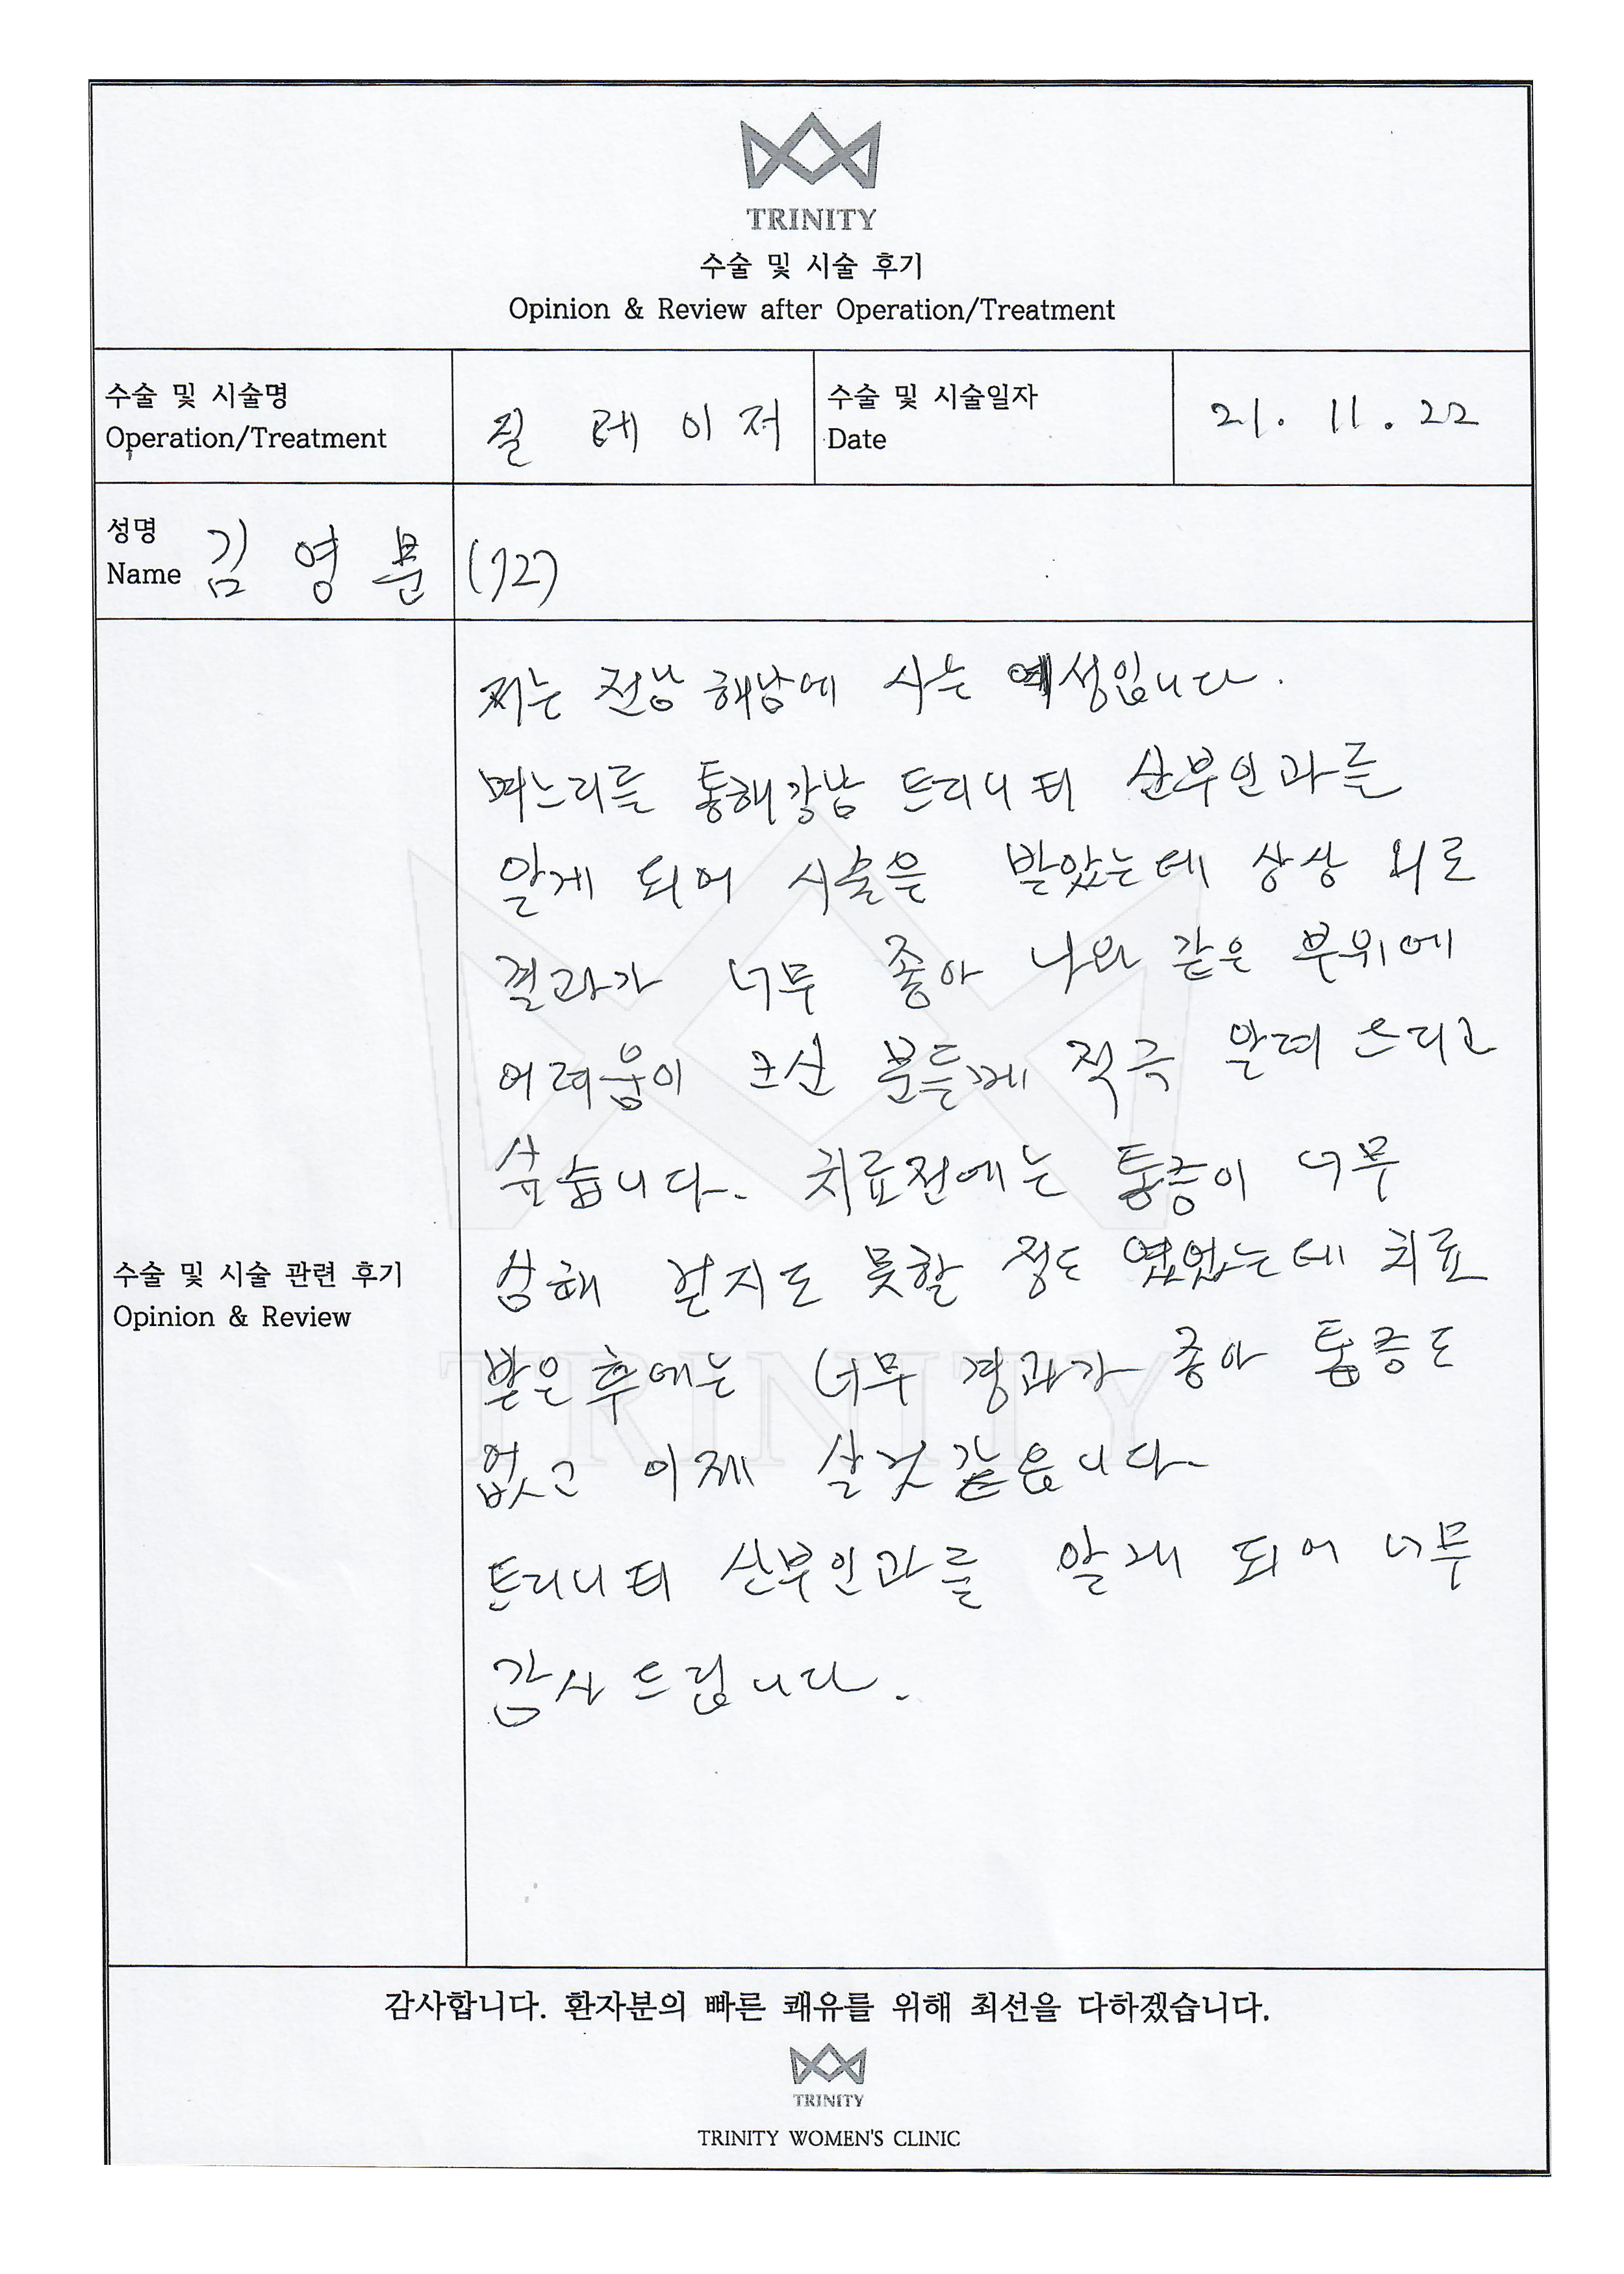 TRINITY
수술 및 시술 후기
Opinion & Review after Operation/Treatment
수술 및 시술명
Operation/Treatment
질 레이저
수술 및 시술일자
Date
21. 11. 22
성명
Name
김영분 (72)
수술 및 시술 관련 후기
Opinion & Review
저는 전남 해남에 사는 여성입니다.
며느리를 통해 강남 트리니티 산부인과를
알게 되어 시술을 받았는데 상상 외로
결과가 너무 좋아 나와 같은 부위에
어려움이 크신 분들께 적극 알려 드리고
싶습니다. 치료전에는 통증이 너무
심해 걷지도 못할 정도 였었는데 치료
받은 후에는 너무 경과가 좋아 통증도
없고 이제 살것 같읍니다.
트리니티 산부인과를 알게 되어 너무
감사 드립니다.
TRINITY
감사합니다. 환자분의 빠른 쾌유를 위해 최선을 다하겠습니다.
TRINITY
TRINITY WOMEN'S CLINIC